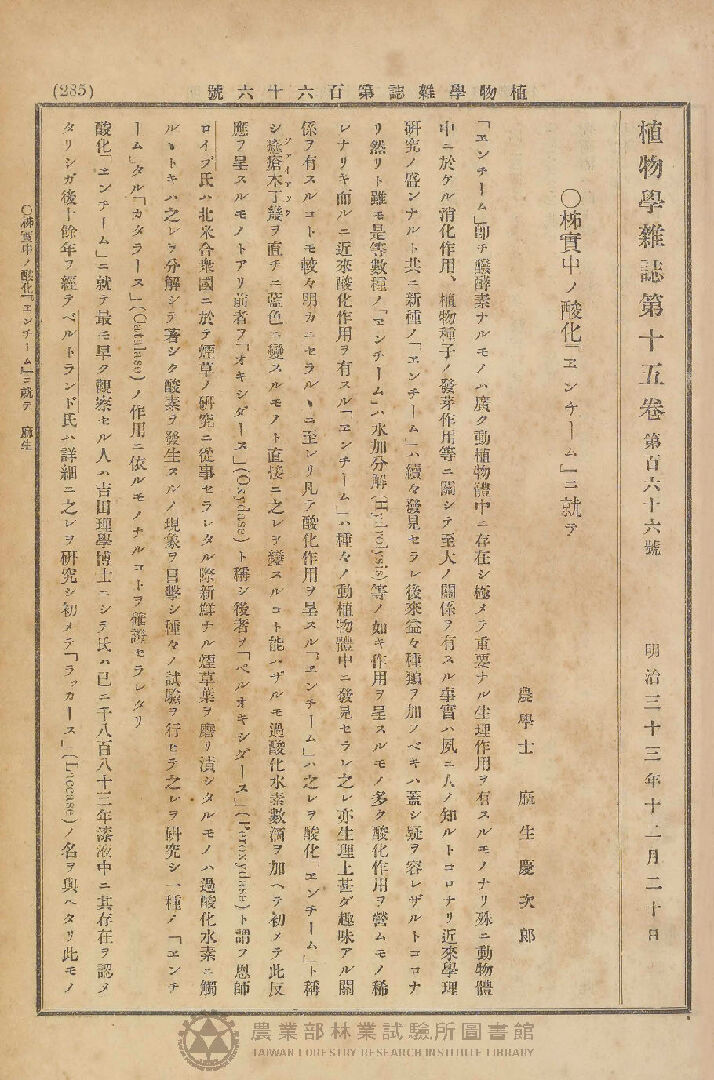 (285)
植物學雜誌第百六十六號
植物學雜誌第十五卷 第百六十六號 明治三十三年十二月二十日
○柹實中ノ酸化「エンチーム」ニ就テ
農學士 麻生慶次郎
「エンチーム」卽チ釀酵素ナルモノハ廣ク動植物體中ニ存在シ極メテ重要ナル生理作用ヲ有スルモノナリ殊ニ動物體
中ニ於ケル消化作用、植物種子ノ發芽作用等ニ關シテ至大ノ關係ヲ有スル事實ハ夙ニ人ノ知ルトコロナリ近來學理
硏究ノ盛ンナルト共ニ新種ノ「エンチーム」ハ續々發見セラレ後來益々種類ヲ加フベキハ蓋シ疑ヲ容レザルトコロナ
リ然リト雖モ是等數種ノ「エンチーム」ハ水加分解(Hydrolysis)等ノ如キ作用ヲ呈スルモノ多ク酸化作用ヲ營ムモノ稀
レナリキ而ルニ近來酸化作用ヲ有スル「エンチーム」ハ種々ノ動植物體中ニ發見セラレ之レ亦生理上甚ダ趣味アル關
係ヲ有スルコトモ較々明カニセラルヽニ至レリ凡テ酸化作用ヲ呈スル「エンチーム」ハ之レヲ酸化「エンチーム」ト稱
シ癒瘡木丁幾ヲ直チニ藍色ニ變スルモノト直接ニ之レヲ變スルコト能ハザルモ過酸化水素數滴ヲ加ヘテ初メテ此反
應ヲ呈スルモノトアリ前者ヲ「オキシダース」(Oxydase)ト稱シ後者ヲ「ペルオキシダース」(Peroxydase)ト謂フ恩師
ロイブ氏ハ北米合衆國ニ於テ煙草ノ硏究ニ從事セラレタル際新鮮ナル煙草葉ヲ磨リ潰シタルモノハ過酸化水素ニ觸
ルヽトキハ之レヲ分解シテ著シク酸素ヲ發生スルノ現象ヲ目擊シ種々ノ試驗ヲ行ヒテ之レヲ硏究シ一種ノ「エンチ
ーム」タル「カタラース」(Catalase)ノ作用ニ依ルモノナルコトヲ確證セラレタリ
酸化「エンチーム」ニ就テ最モ早ク觀察セル人ハ吉田理學博士ニシテ氏ハ已ニ千八百八十三年漆液中ニ其存在ヲ認メ
タリシガ後十餘年ヲ經テベルトランド氏ハ詳細ニ之レヲ硏究シ初メテ「ラッカース」(Laccase)ノ名ヲ與ヘタリ此モノ
○柹實中ノ酸化「エンチーム」ニ就テ 麻生
農業部林業試驗所圖書館
TAIWAN FORESTRY RESEARCH INSTITUTE LIBRARY